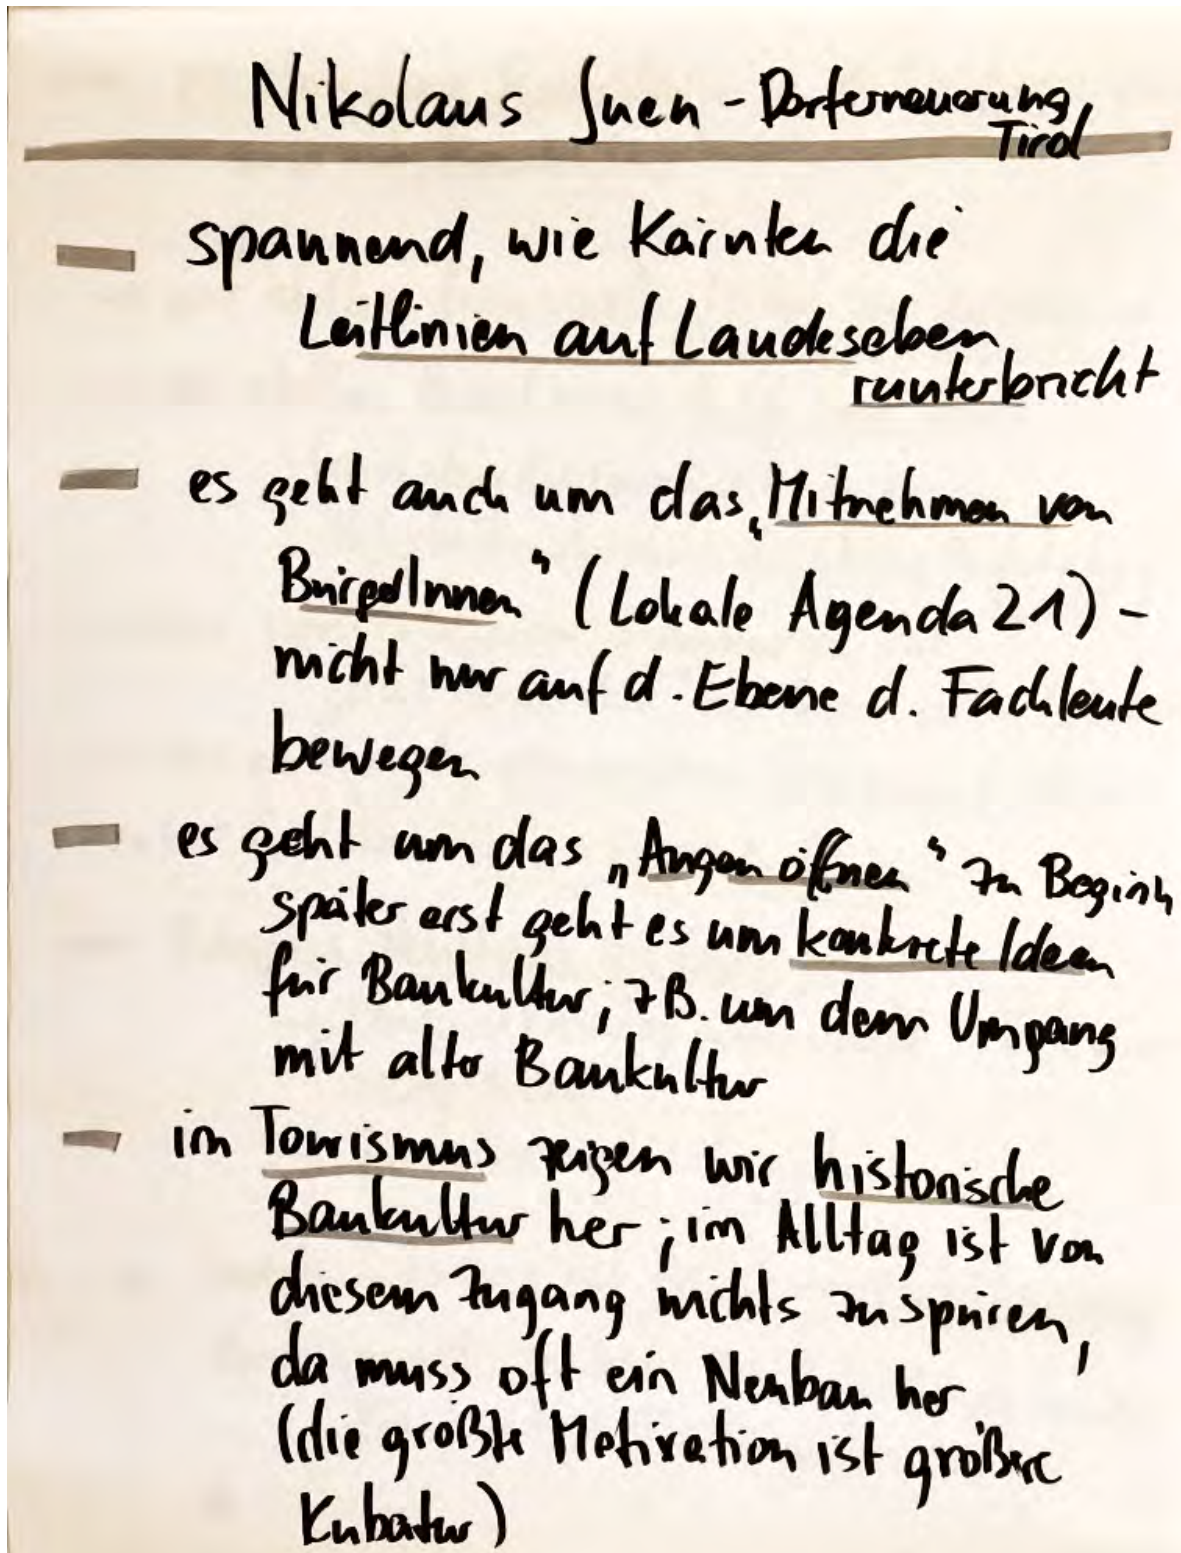 Nikolaus Juen - Dorferneuerung,
Tirol
spannend, wie Kärnten die
Leitlinien auf Landeseben
runterbricht
es geht auch um das „Mitnehmen von
BürgerInnen" (Lokale Agenda 21) -
nicht nur auf d. Ebene d. Fachleute
bewegen
es geht um das „Augen öffnen" zu Beginn
später erst geht es um konkrete Ideen
für Baukultur; zB. um dem Umgang
mit alter Baukultur
im Tourismus zeigen wir historische
Baukultur her; im Alltag ist von
diesem Zugang nichts zu spüren,
da muss oft ein Neubau her
(die größte Motivation ist größere
Kubatur)